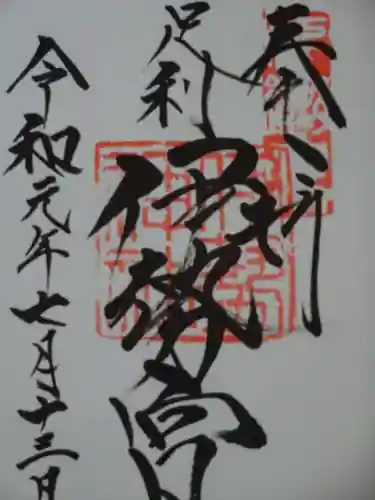 奉拝
足利
伊勢宮
令和元年七月十三日